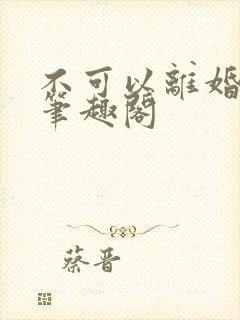 不可以離婚
筆趣閣
蔡晋